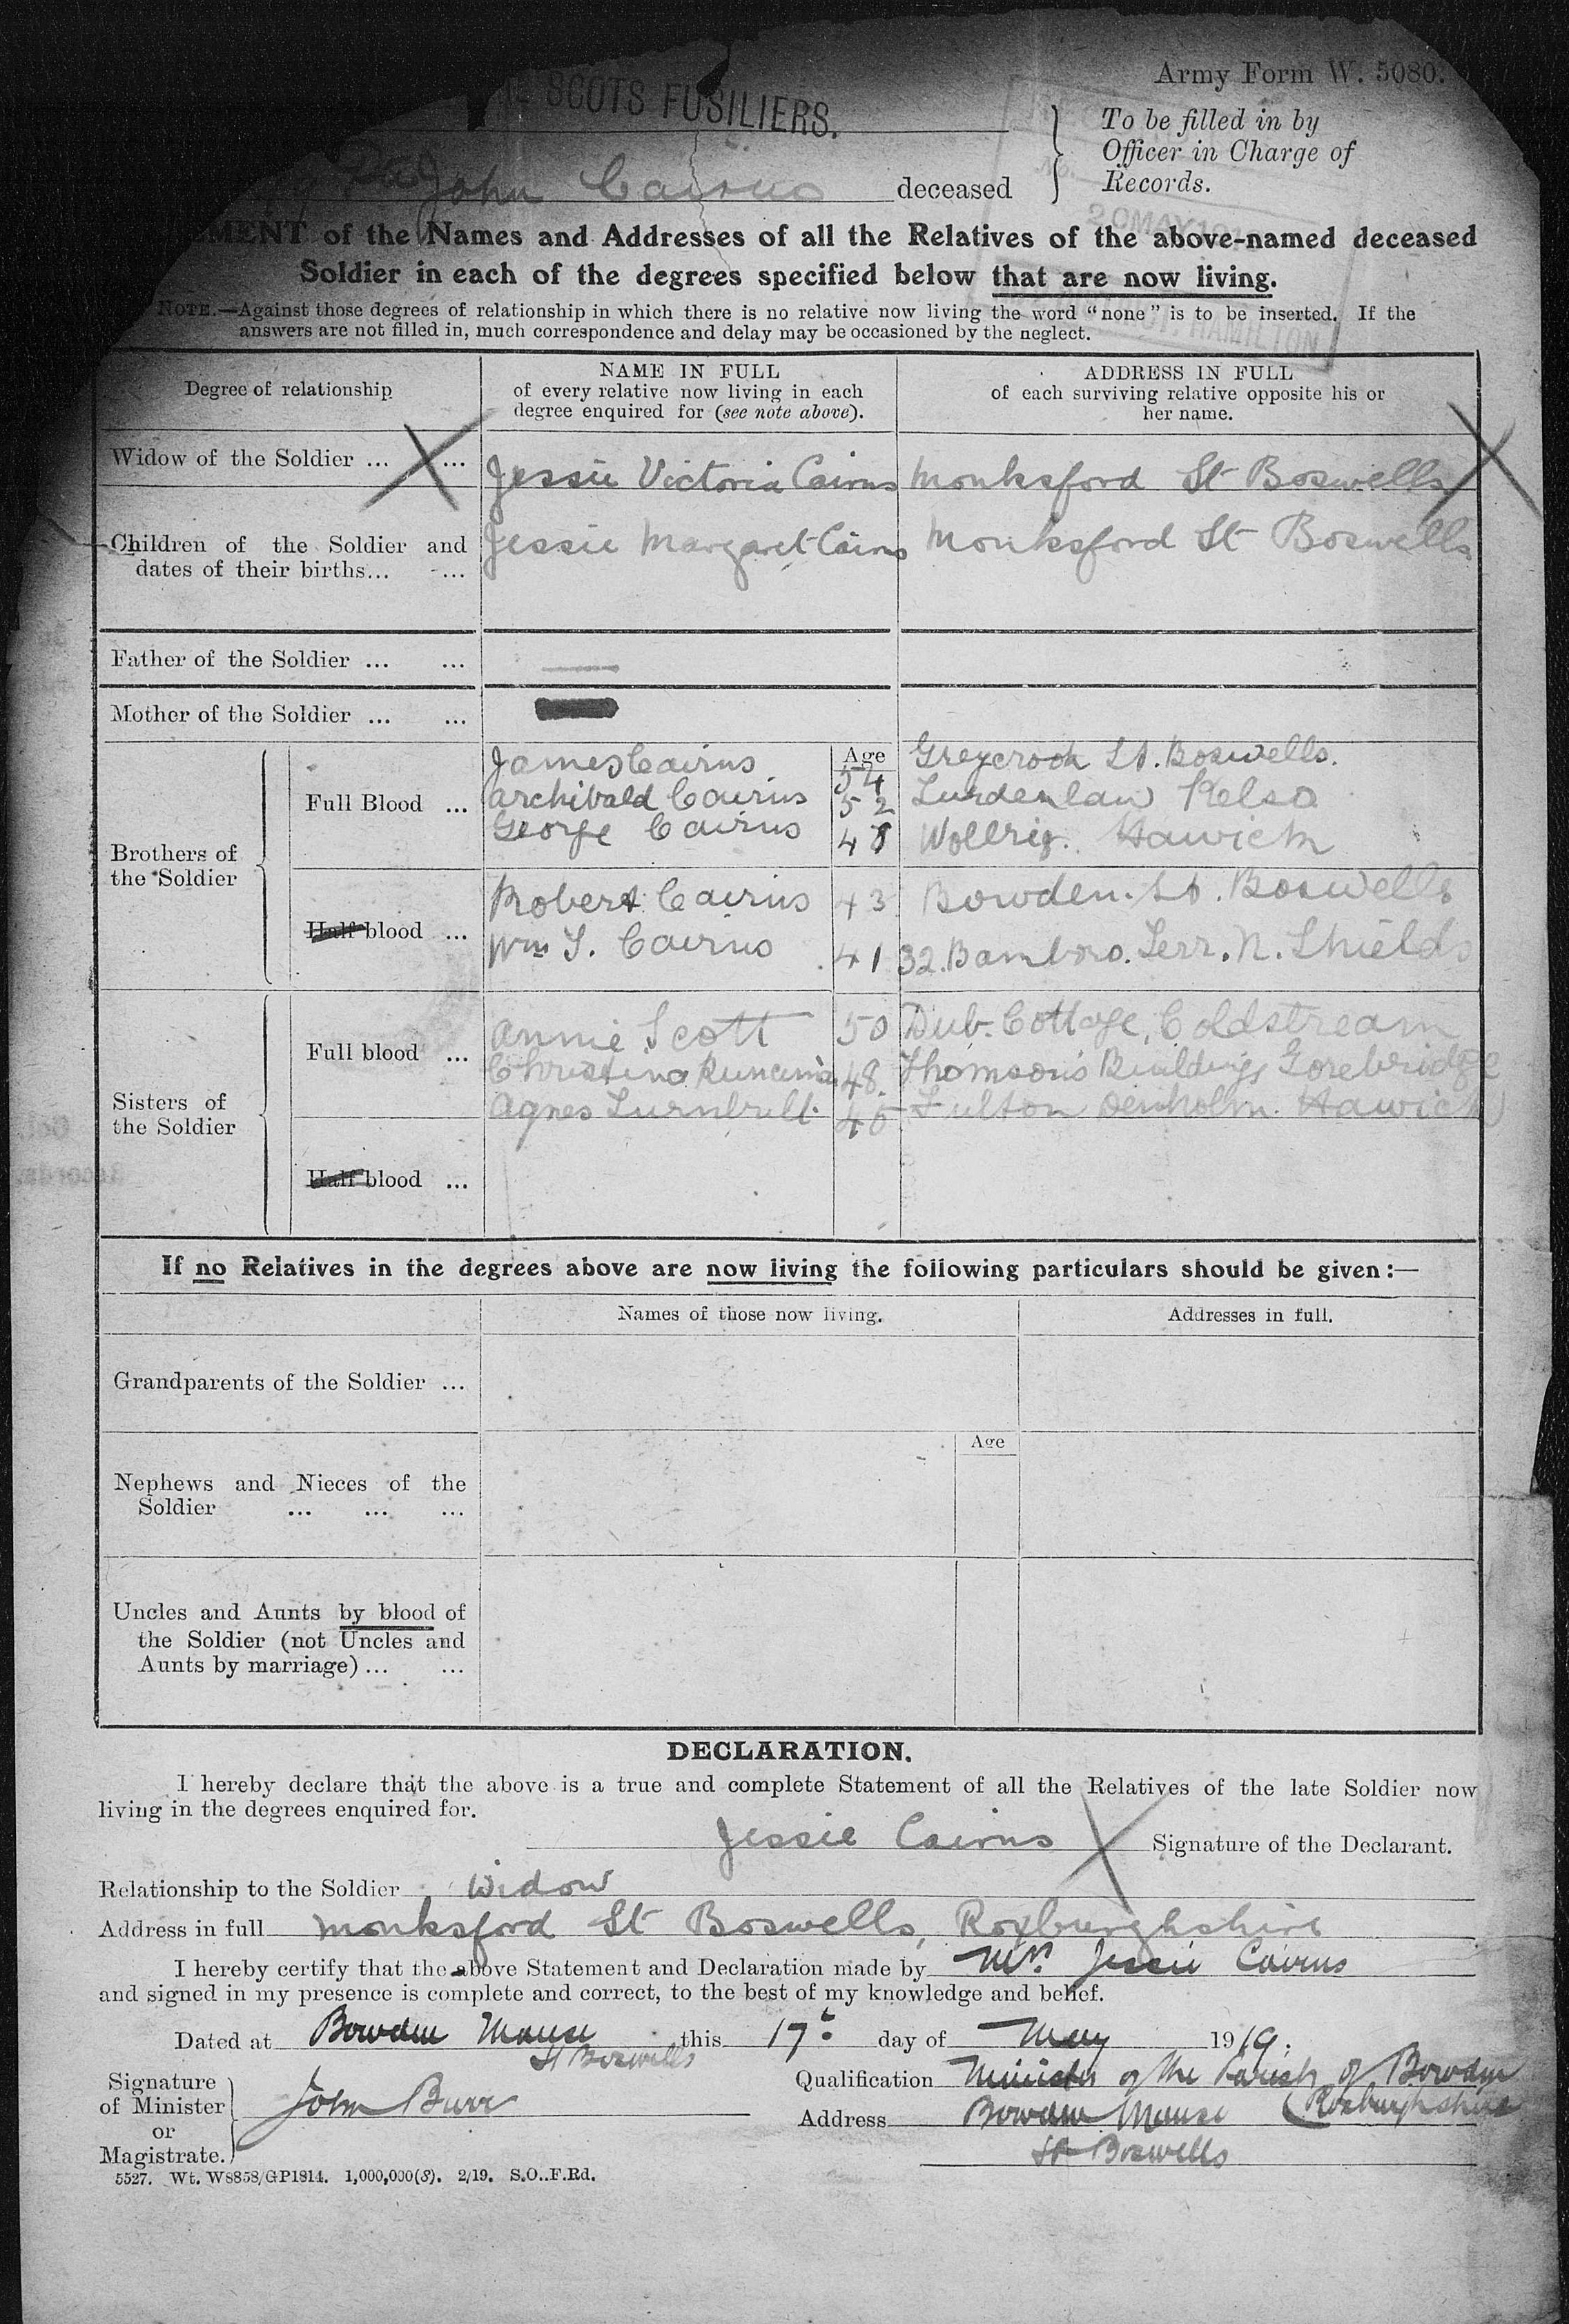 SCOTS FUSILIERS.
Army Form W. 5080.
To be filled in by
Officer in Charge of
Records.
John Cairns deceased
20 MAY 191
HAMILTON
MENT of the Names and Addresses of all the Relatives of the above-named deceased
Soldier in each of the degrees specified below that are now living.
NOTE.—Against those degrees of relationship in which there is no relative now living the word "none" is to be inserted. If the
answers are not filled in, much correspondence and delay may be occasioned by the neglect.
Degree of relationship
NAME IN FULL
of every relative now living in each
degree enquired for (see note above).
ADDRESS IN FULL
of each surviving relative opposite his or
her name.
Widow of the Soldier ... ... Jessie Victoria Cairns Monksford St Boswells
Children of the Soldier and
dates of their births... ... Jessie Margaret Cairns Monksford St Boswells
Father of the Soldier ... ...
Mother of the Soldier ... ...
Brothers of
the Soldier
Age
Full Blood ...
James Cairns 54 Greycrook St. Boswells.
Archibald Cairns 52 Lurdenlaw Kelso
George Cairns 48 Wollrig. Hawick
Half blood ...
Robert Cairns 43 Bowden. St. Boswells
Wm T. Cairns 41 32. Bamboro. Terr. N. Shields
Sisters of
the Soldier
Full blood ...
Annie Scott 50 Dub. Cottage, Coldstream
Christina Runciman 48. Thomson's Buildings Gorebridge
Agnes Turnbull. 45 Fulton Denholm. Hawick
Half blood ...
If no Relatives in the degrees above are now living the following particulars should be given:—
Names of those now living.
Addresses in full.
Grandparents of the Soldier ...
Age
Nephews and Nieces of the
Soldier ... ... ...
Uncles and Aunts by blood of
the Soldier (not Uncles and
Aunts by marriage)... ...
DECLARATION.
I hereby declare that the above is a true and complete Statement of all the Relatives of the late Soldier now
living in the degrees enquired for.
Jessie Cairns Signature of the Declarant.
Relationship to the Soldier Widow
Address in full Monksford St Boswells, Roxburghshire
I hereby certify that the above Statement and Declaration made by Mrs. Jessie Cairns
and signed in my presence is complete and correct, to the best of my knowledge and belief.
Dated at Bowden Manse this 17th day of May 1919.
St Boswells
Signature
of Minister
or
Magistrate.
John Burr
Qualification Minister of the Parish of Bowden
(Roxburghshire
Address Bowden Manse
St Boswells
5527. Wt. W8858/GP1814. 1,000,000(S). 2/19. S.O.,F.Rd.